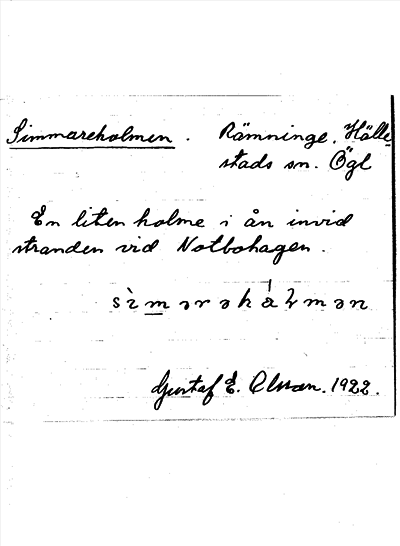 Simmareholmen. Rämninge, Hälle-
stads sn. Ögl
En liten holme i ån invid
stranden vid Notbohagen.
Gustaf E. Olsson. 1922.